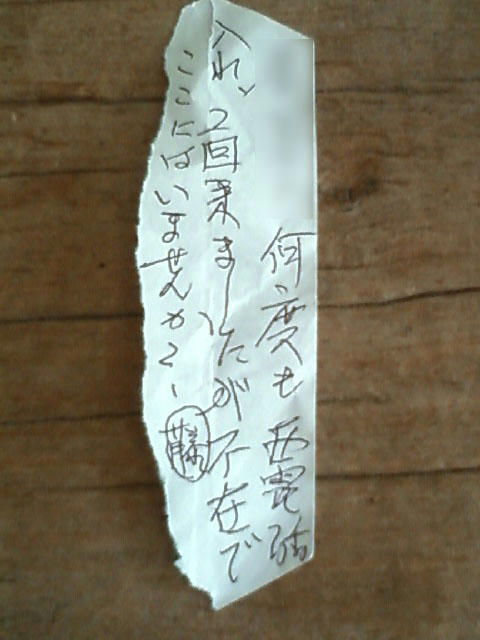 何度も電話
入れ、2回来ましたが不在で
ここにはいませんか?
藤